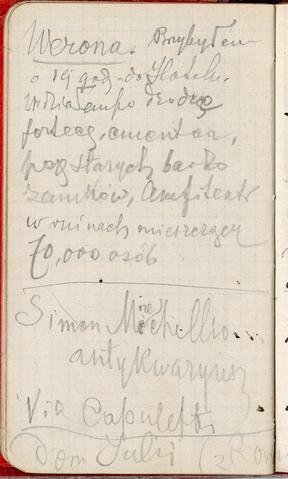 Werona. Przybyłem
o 19 godz. do Hotelu.
Widziałem po drodze
fortecę, cmentarz,
parę starych
zamków, Amfiteatr
w ruinach mieszczący
70,000 osób
Simon
antykwaryusz
Via Capuletti
Dom Julii (z Rom